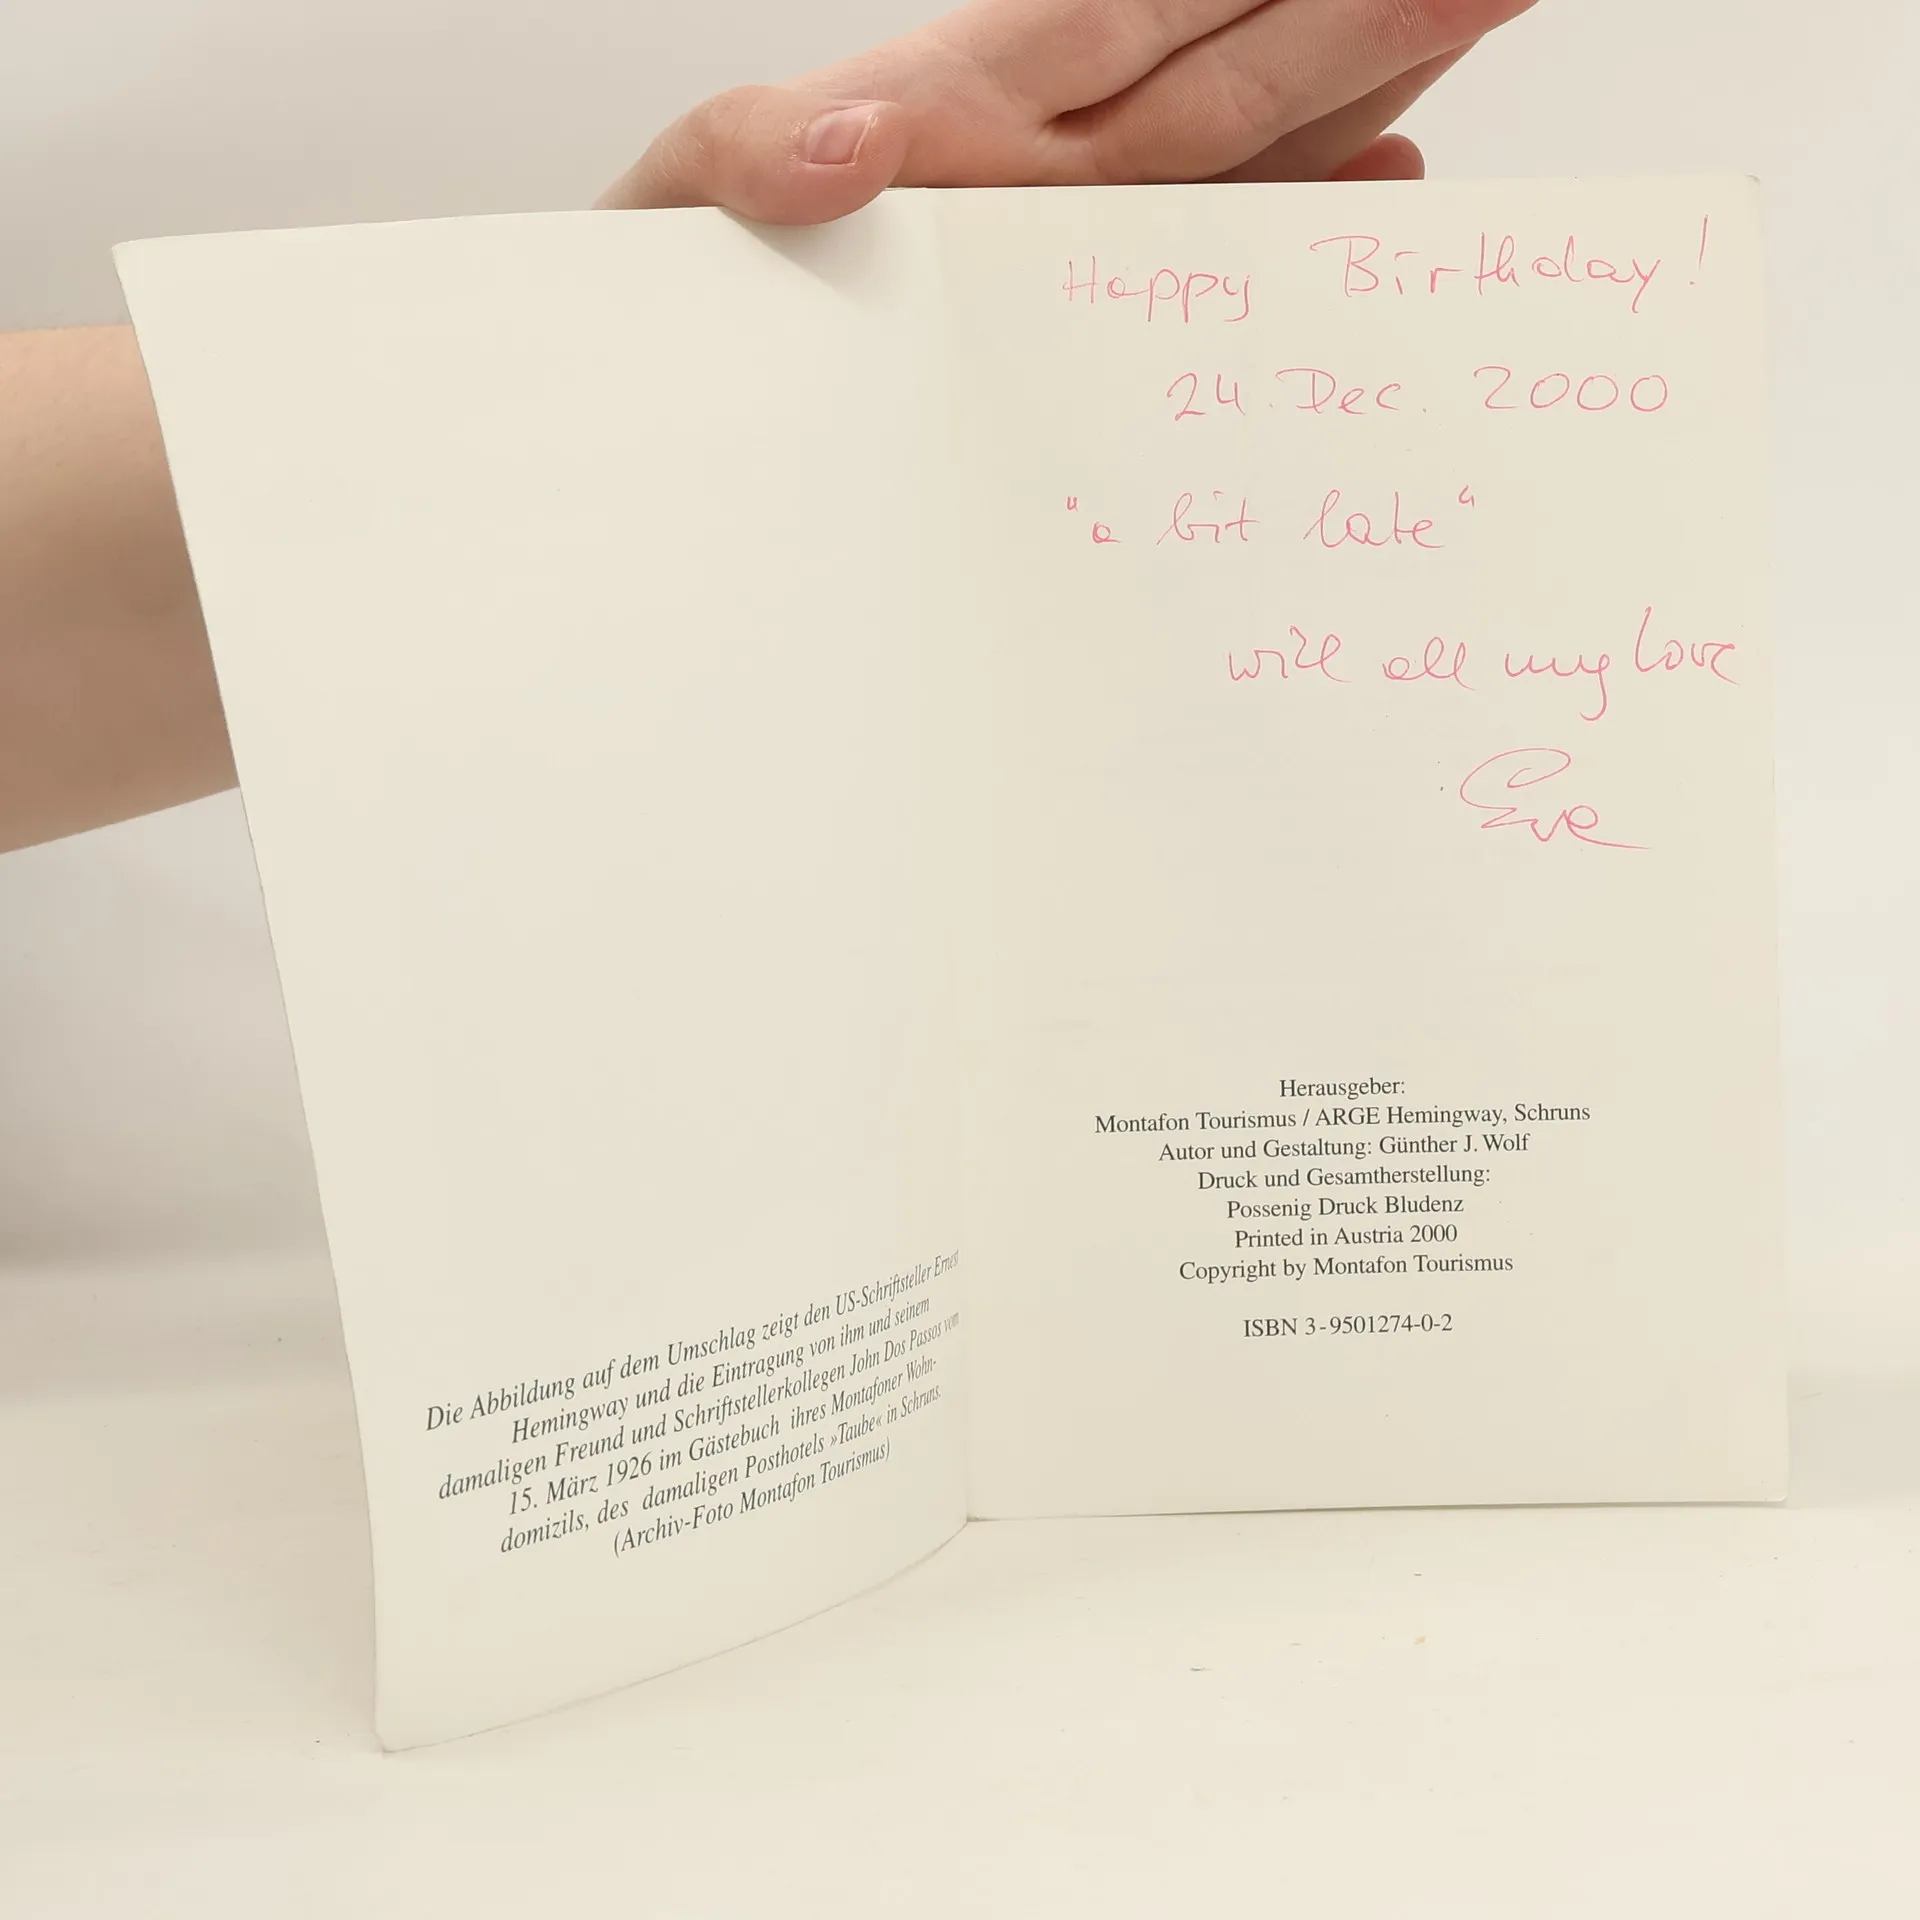 Die Abbildung auf dem Umschlag zeigt den US-Schriftsteller Ernest
Hemingway und die Eintragung von ihm und seinem
damaligen Freund und Schriftstellerkollegen John Dos Passos vom
15. März 1926 im Gästebuch ihres Montafoner Wohn-
domizils, des damaligen Posthotels »Taube« in Schruns.
(Archiv-Foto Montafon Tourismus)
Happy Birthday!
24. Dec. 2000
"a bit late"
will all my love
Eve
Herausgeber:
Montafon Tourismus / ARGE Hemingway, Schruns
Autor und Gestaltung: Günther J. Wolf
Druck und Gesamtherstellung:
Possenig Druck Bludenz
Printed in Austria 2000
Copyright by Montafon Tourismus
ISBN 3-9501274-0-2